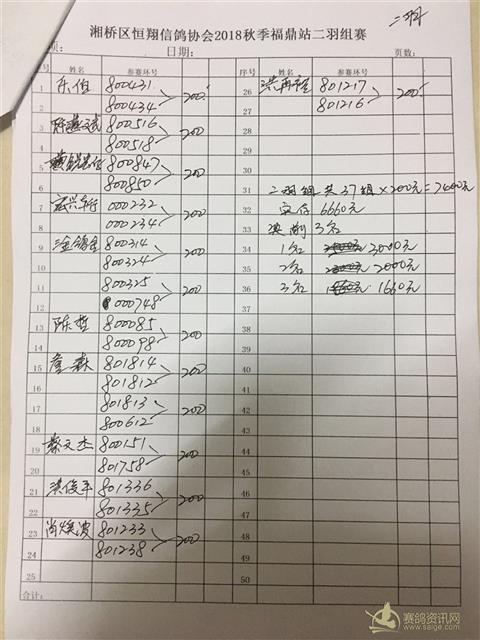 二羽
湘桥区恒翔信鸽协会2018秋季福鼎站二羽组赛
项: 日期: 页数:
号 姓名 参赛环号 序号 姓名 参赛环号
1 乐伯 800431 200 26 洪再程 801217 200
2 800434 27 801216
3 800516 200 28
4 800518 29
5 800847 200 30
6 800850 31 二羽组共37组×200元=7400元
7 宏兴车行 000232 200 32 实存6660元
8 000234 33 奖前3名
9 800314 200 34 1名 3000元
10 800324 35 2名 2000元
11 800325 200 36 3名 1660元
12 000748 37
13 陈哲 800085 200 38
14 800098 39
15 詹森 801814 200 40
16 801812 41
17 801813 200 42
18 800612 43
19 蔡文杰 800151 200 44
20 801758 45
21 洪俊平 801336 200 46
22 801335 47
23 肖焕波 801233 200 48
24 801238 49
25 50
合计:
赛鸽资讯网
www.saige.com